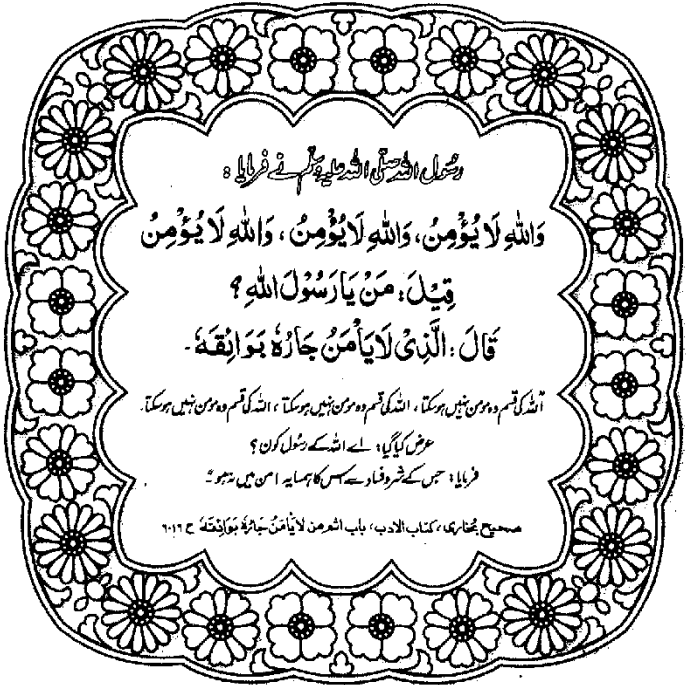 رسُول اللہ صلّی اللہ علیہ وسلّم نے فرمایا :
وَاللهِ لَا يُؤْمِنُ، وَاللهِ لَا يُؤْمِنُ، وَاللهِ لَا يُؤْمِنُ
قِيْلَ: مَنْ يَا رَسُوْلَ اللهِ؟
قَالَ: الَّذِىْ لَا يَأْمَنُ جَارُهٗ بَوَائِقَهٗ۔
"اللہ کی قسم وہ مومن نہیں ہوسکتا ، اللہ کی قسم وہ مومن نہیں ہوسکتا ، اللہ کی قسم وہ مومن نہیں ہوسکتا۔
عرض کیا گیا: اے اللہ کے رسول کون ؟
فرمایا: جس کے شر و فساد سے اس کا ہمسایہ امن میں نہ ہو"۔
صحیح بخاری، کتاب الادب، باب اثم من لَا يَأْمَنُ جَارُهٗ بَوَائِقَهٗ ح ۶۰۱۶